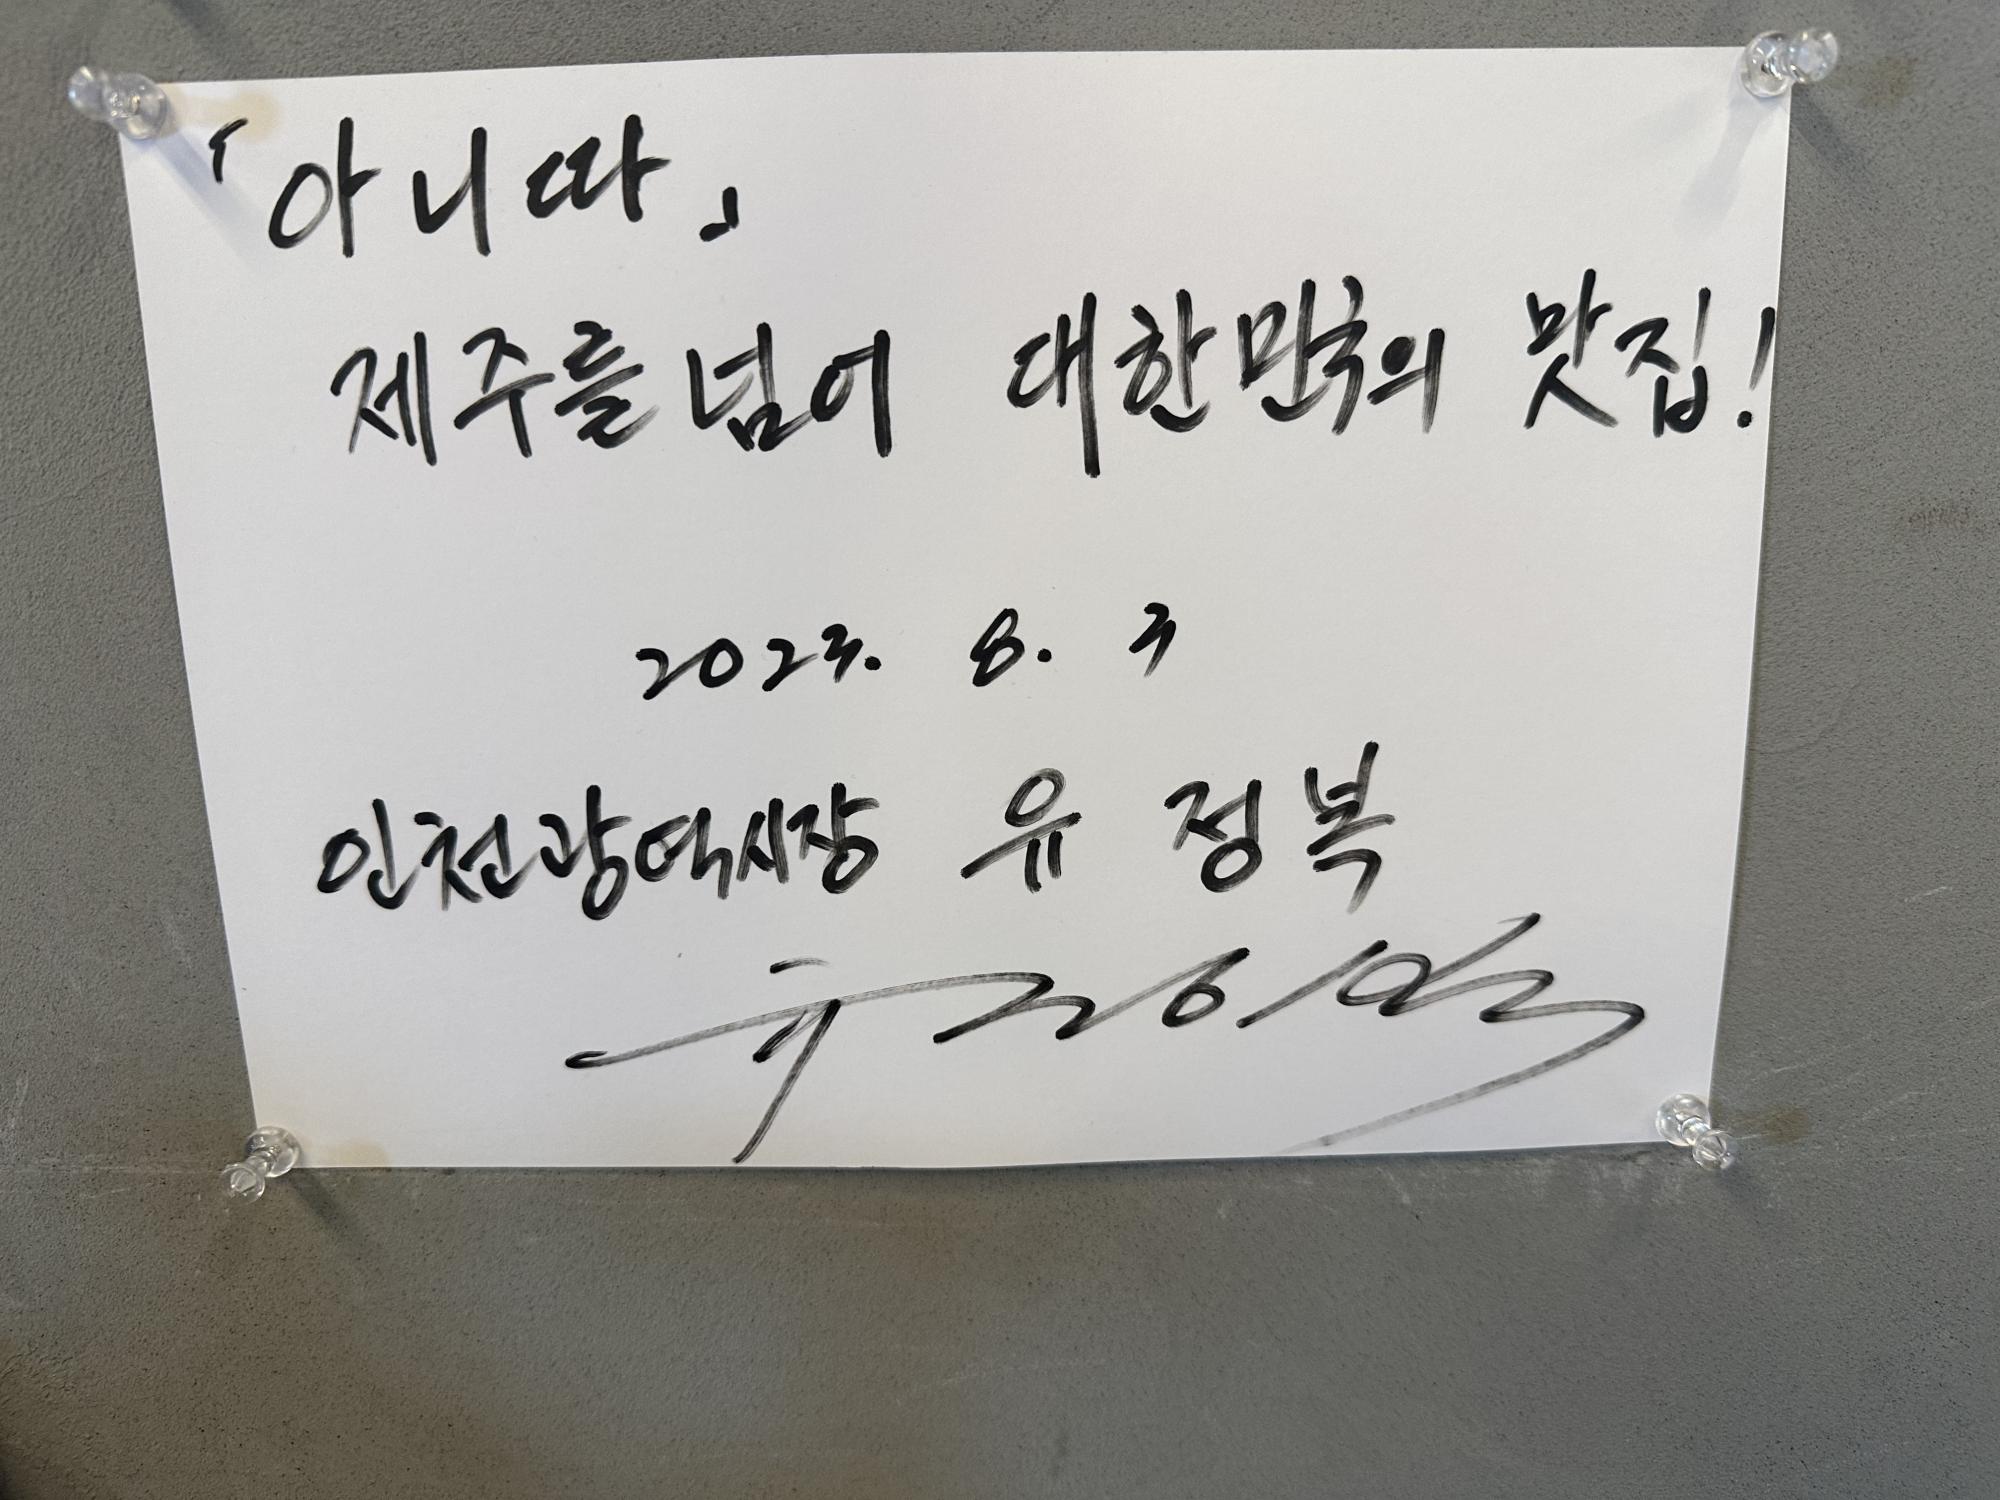 「아니따」
제주를 넘어 대한민국의 맛집!
2023. 8. 3
인천광역시장 유 정 복